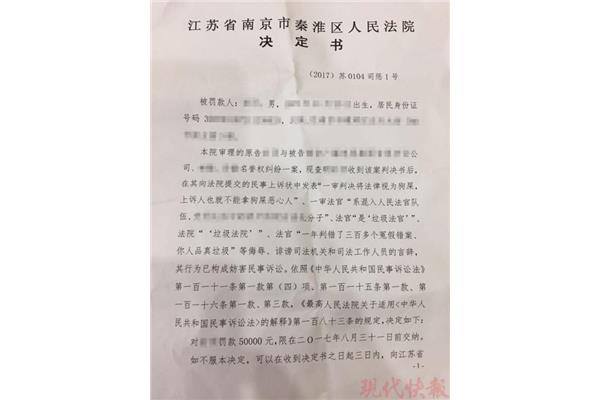 江苏省南京市秦淮区人民法院
决 定 书
（2017）苏0104司惩1号
被罚款人：男，出生，居民身份证
号码3
本院审理的原告与被告公
司、名誉权纠纷一案，现查明收到该案判决书后，
在其向法院提交的民事上诉状中发表“一审判决将法律视为狗屎，
上诉人也就不能拿狗屎恶心人”、一审法官“系混入人民法官队
伍，分子”、法官“是‘垃圾法官’”、
法院“‘垃圾法院’”、法官“一年判错了三百多个冤假错案、
你人品真垃圾”等侮辱、诽谤司法机关和司法工作人员的言辞，
其行为已构成妨害民事诉讼。依照《中华人民共和国民事诉讼法》
第一百一十一条第一款第（四）项、第一百一十五条第一款、第
一百一十六条第一款、第三款，《最高人民法院关于适用<中华人
民共和国民事诉讼法>的解释》第一百八十三条的规定，决定如下：
对罚款50000元，限在二〇一七年八月三十一日前交纳。
如不服本决定，可以在收到决定书之日起三日内，向江苏省
-1-
现代快报